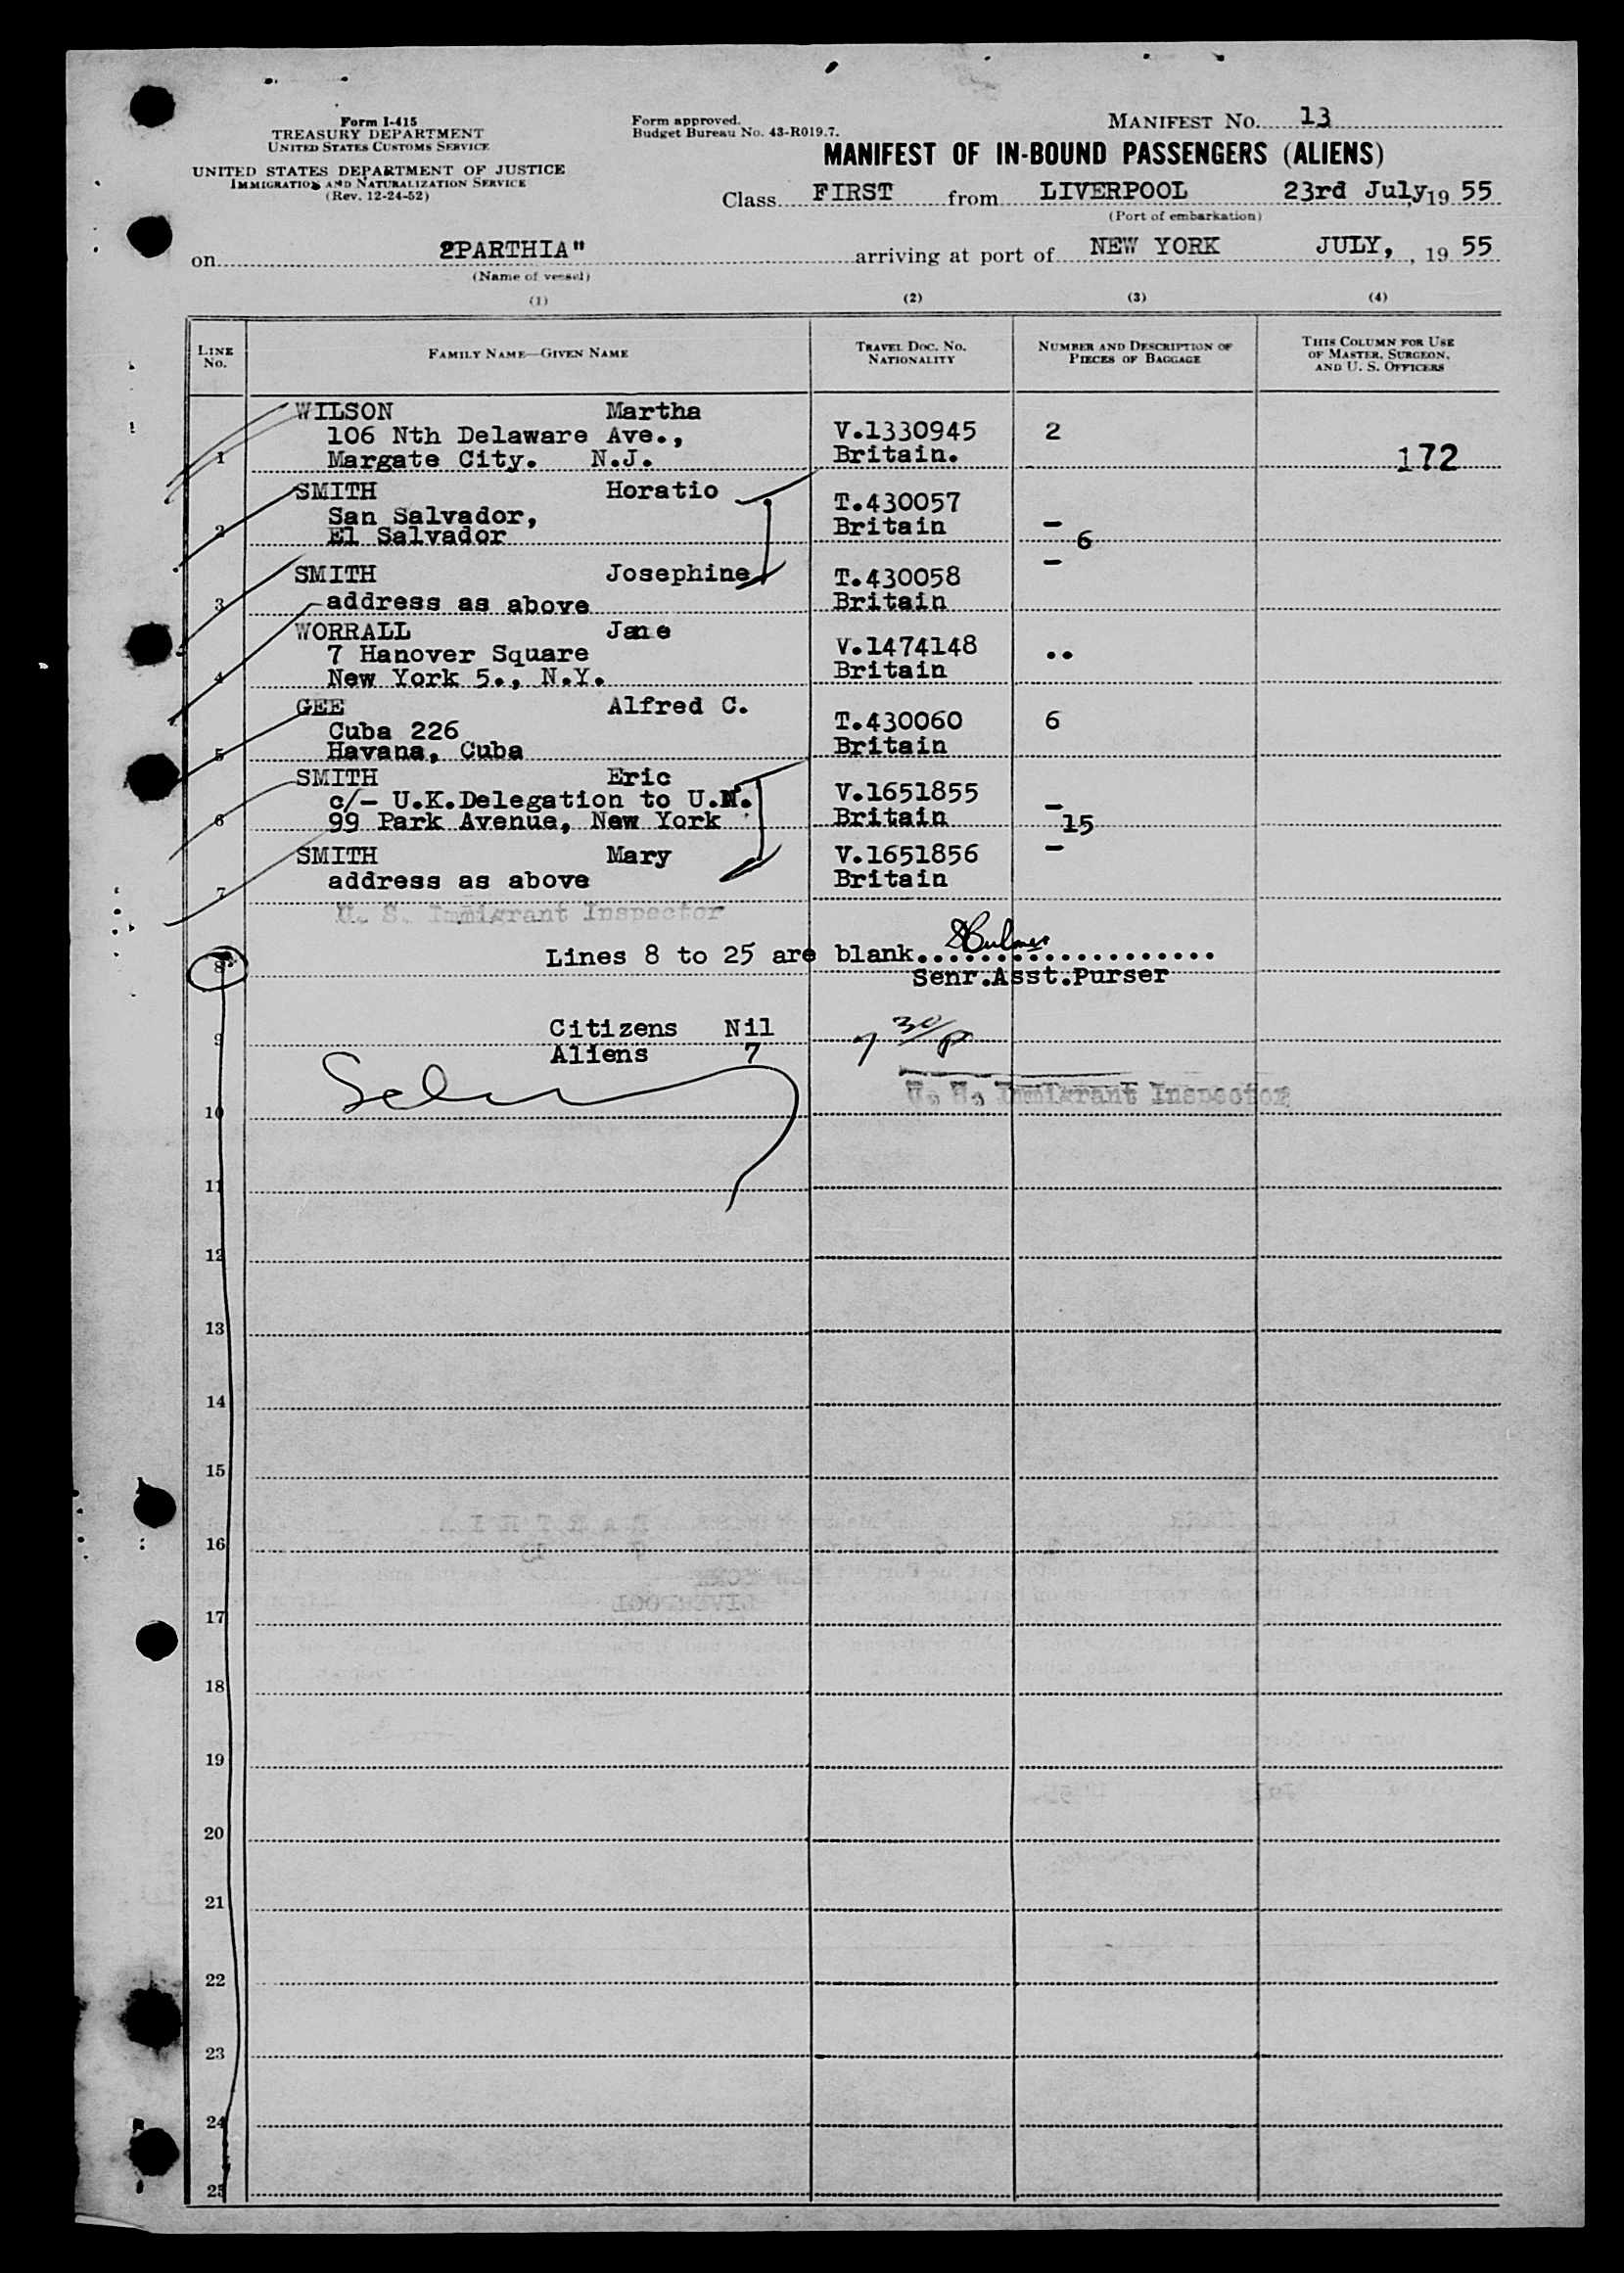 Form I-415
TREASURY DEPARTMENT
UNITED STATES CUSTOMS SERVICE
UNITED STATES DEPARTMENT OF JUSTICE
IMMIGRATION AND NATURALIZATION SERVICE
(Rev. 12-24-52)
Form approved.
Budget Bureau No. 43-R019.7.
MANIFEST NO. 13
MANIFEST OF IN-BOUND PASSENGERS (ALIENS)
Class FIRST from LIVERPOOL 23rd July, 19 55
(Port of embarkation)
on 2PARTHIA" arriving at port of NEW YORK JULY, , 19 55
(Name of vessel)
(1) (2) (3) (4)
LINE NO.
FAMILY NAME—GIVEN NAME
TRAVEL DOC. NO. NATIONALITY
NUMBER AND DESCRIPTION OF PIECES OF BAGGAGE
THIS COLUMN FOR USE OF MASTER, SURGEON, AND U. S. OFFICERS
WILSON Martha
106 Nth Delaware Ave., V.1330945 2
1 Margate City. N.J. Britain. 172
SMITH Horatio T.430057
San Salvador, Britain –
2 El Salvador 6
SMITH Josephine T.430058 –
3 address as above Britain
WORRALL Jane V.1474148
7 Hanover Square Britain ..
4 New York 5., N.Y.
GEE Alfred C. T.430060 6
Cuba 226
5 Havana, Cuba Britain
SMITH Eric V.1651855
c/- U.K.Delegation to U.N. –
6 99 Park Avenue, New York Britain 15
SMITH Mary V.1651856 –
address as above Britain
7
U. S. Immigrant Inspector
8 Lines 8 to 25 are blank. SBulmer
Senr.Asst.Purser
9 Citizens Nil 7 30/P
Aliens 7
U. S. Immigrant Inspector
10
11
12
13
14
15
16
17
18
19
20
21
22
23
24
25